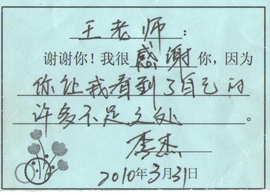 王老师：
谢谢你！我很感谢你，因为
你让我看到了自己的
许多不足之处。
李杰
2010年3月31日